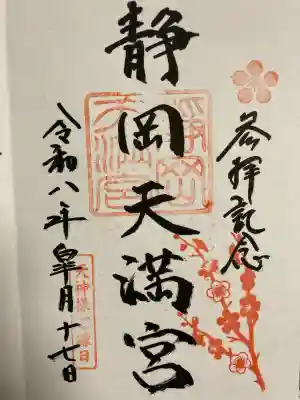 参拝記念
静岡天満宮
令和八年皐月十七日
天神様ご縁日